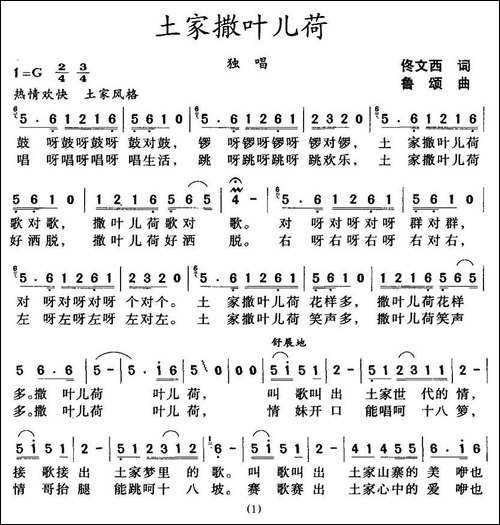 土家撒叶儿荷
独唱
1=G 2/4 3/4
佟文西 词
鲁颂 曲
热情欢快 土家风格
5·6 1261 | 5610 | 5·6 1261 | 2320 | 5·6 1261
鼓 呀鼓呀鼓呀 鼓对鼓, 锣 呀锣呀锣呀 锣对锣, 土 家撒叶儿荷
唱 呀唱呀唱呀 唱生活, 跳 呀跳呀跳呀 跳欢乐, 土 家撒叶儿荷
5610 | 1216 565 | 4 - | 5·6 1261 | 5610
歌对歌, 撒叶儿荷歌对 歌。 对 呀对呀对呀 群对群,
好洒脱, 撒叶儿荷好洒 脱。 右 呀右呀右呀 右对右,
5·6 1261 | 2320 | 5·6 1261 | 5610 | 1216 565
对 呀对呀对呀 个对个。 土 家撒叶儿荷 花样多, 撒叶儿荷花样
左 呀左呀左呀 左对左。 土 家撒叶儿荷 笑声多, 撒叶儿荷笑声
舒展地
多。撒 叶儿荷 叶儿荷, 叫歌叫出 土家世 代的情,
多。撒 叶儿荷 叶儿荷, 情妹开口 能唱呵 十八箩,
接歌接出 土家梦里 的歌。叫歌叫出 土家山寨的美 咿也
情哥抬腿 能跳呵十 八坡。赛歌赛出 土家心中的爱 咿也
(1)